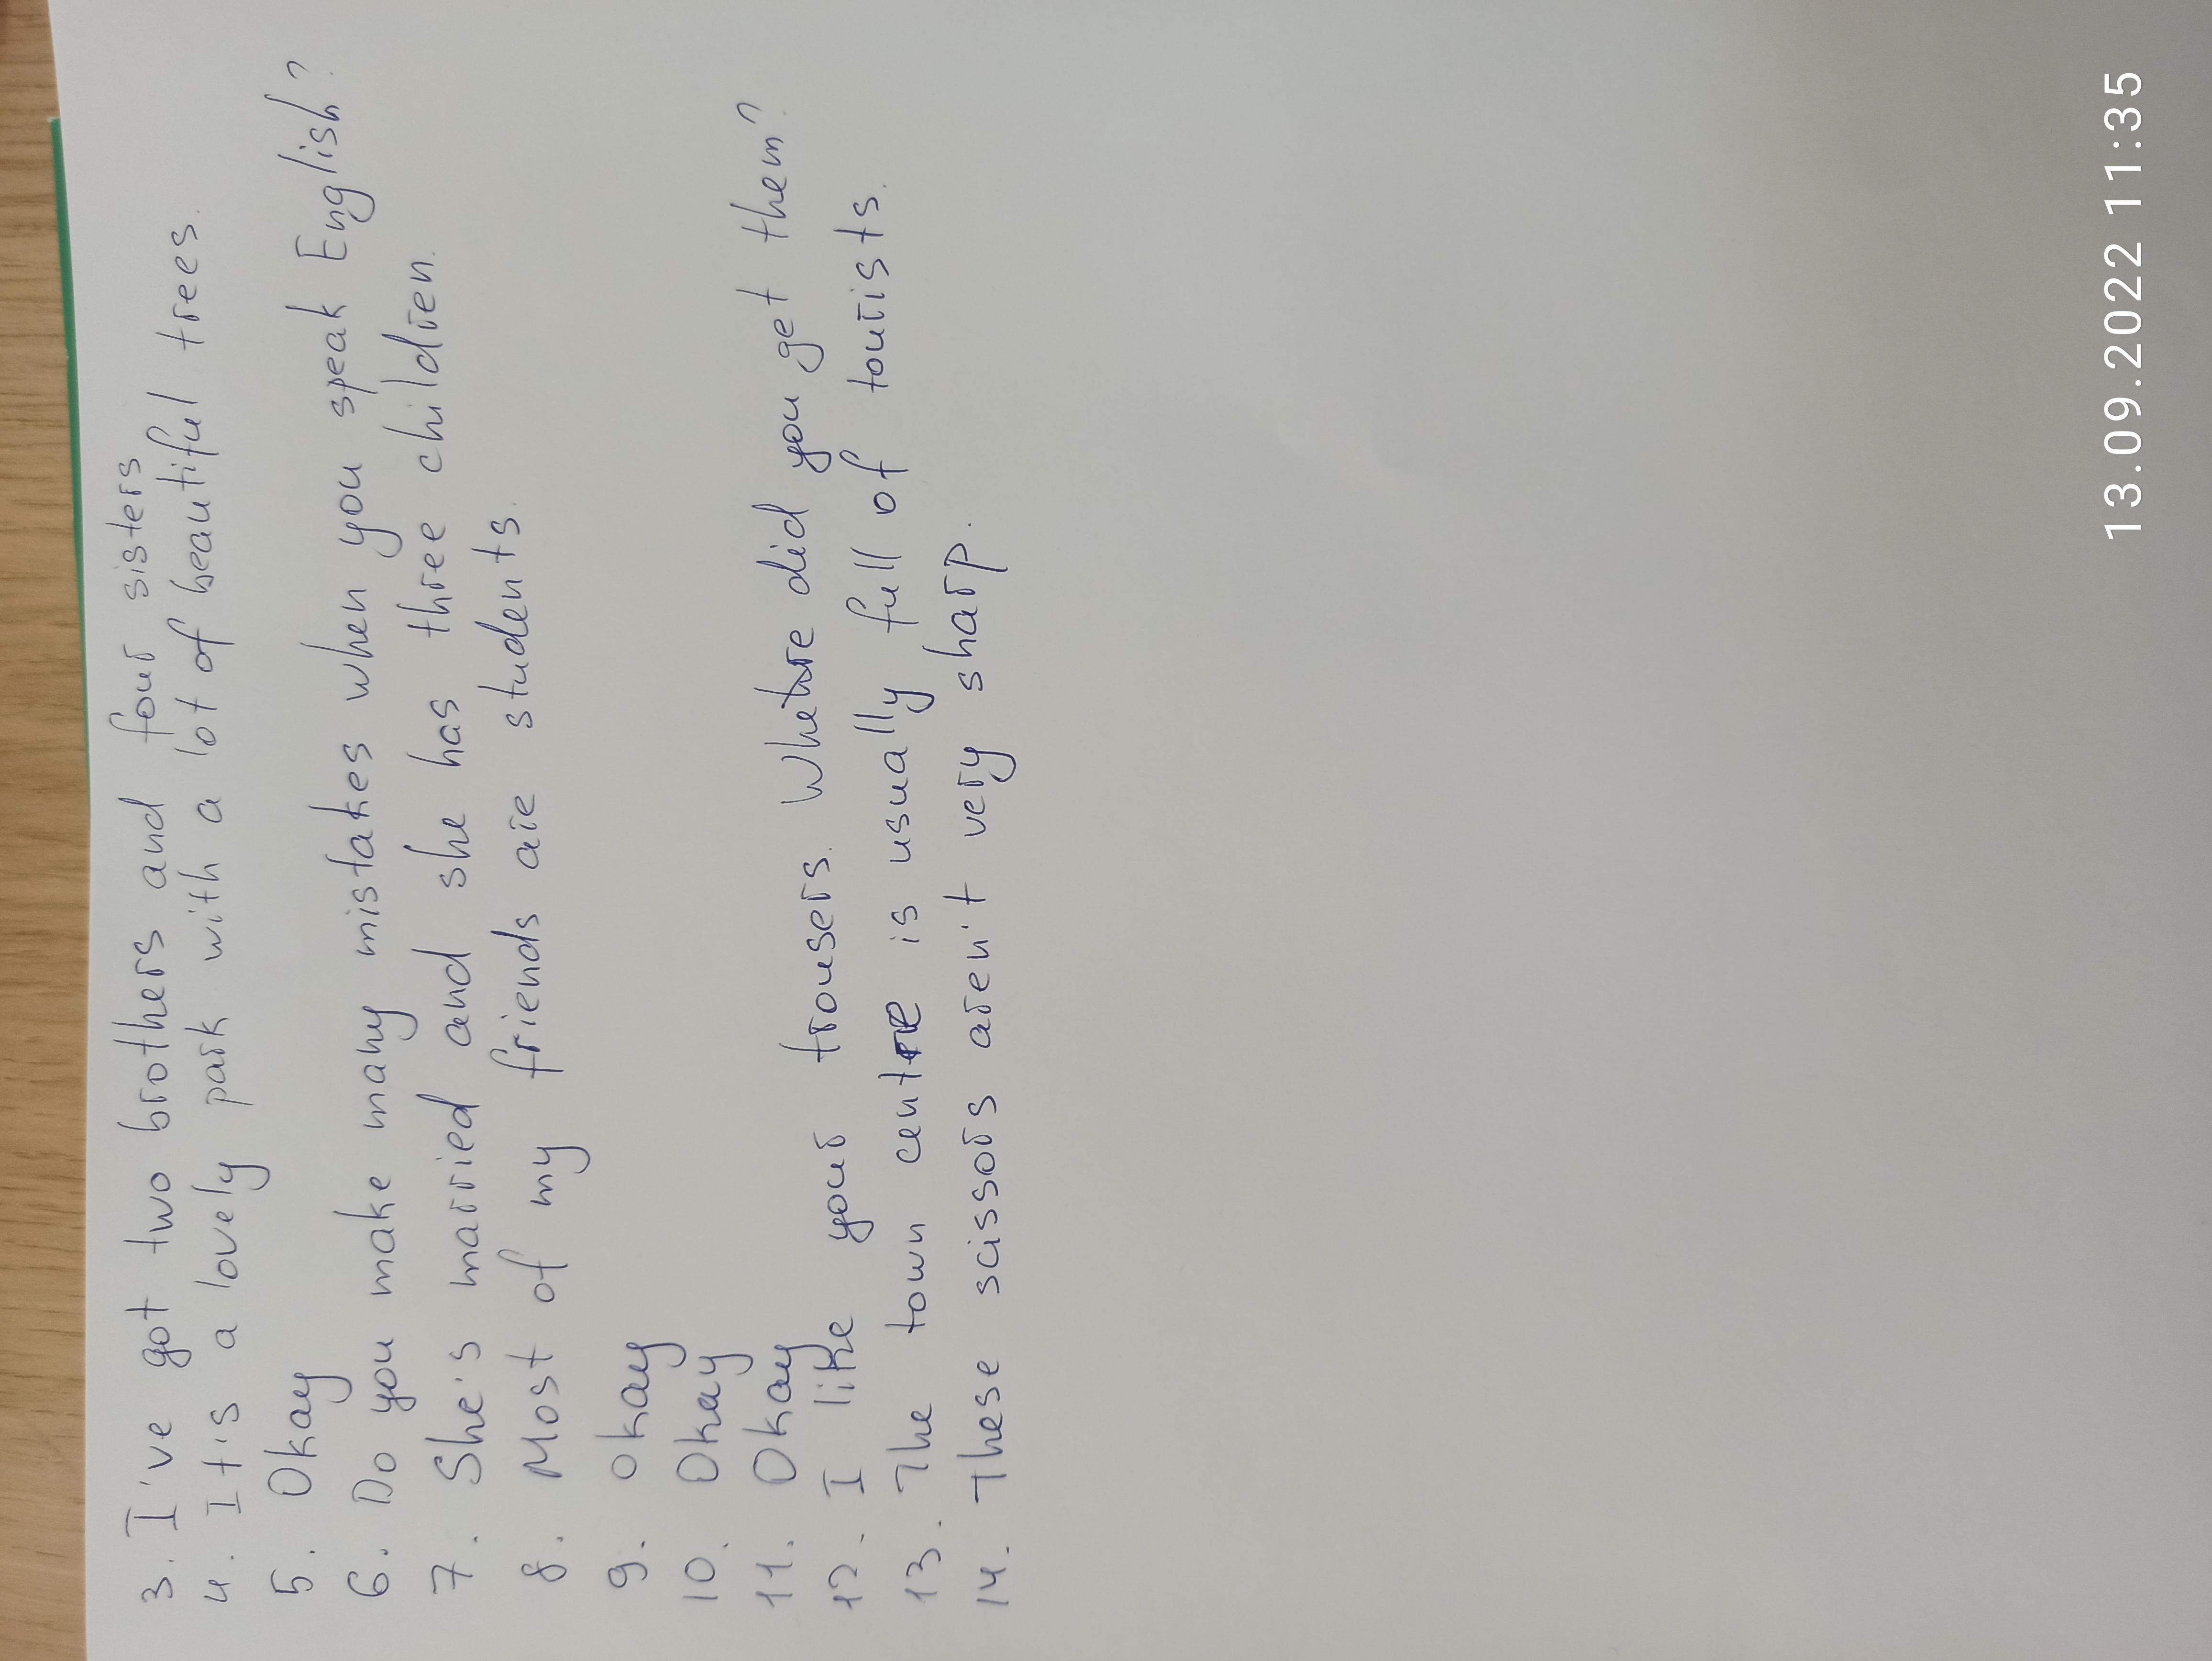 3. I've got two brothers and four sisters
4. It is a lovely park with a lot of beautiful trees.
5. Okay
6. Do you make many mistakes when you speak English?
7. She's married and she has three children.
8. Most of my friends are students.
9. Okay
10. Okay
11. Okay
12. I like your trousers. Where did you get them?
13. The town centre is usually full of tourists.
14. These scissors aren't very sharp.
13.09.2022 11:35